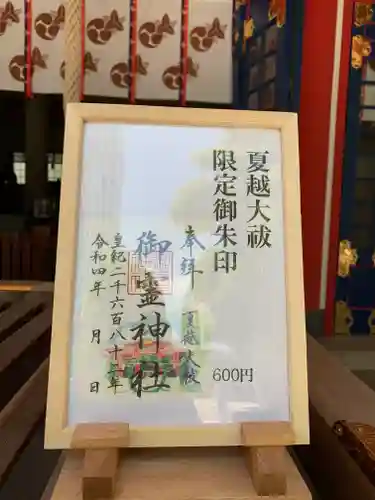 夏越大祓
限定御朱印
奉拝
夏越大祓
御霊神社
皇紀二千六百八十二年
令和四年 月 日
600円